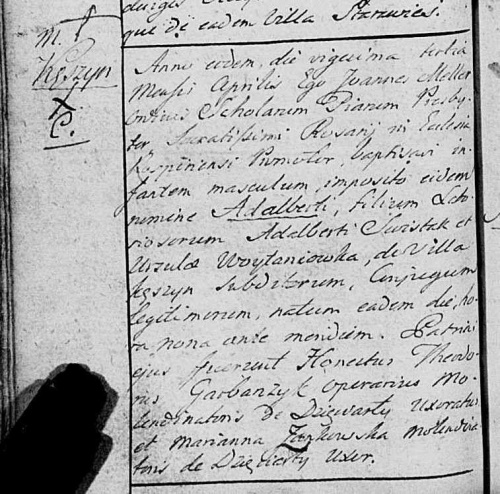 que de eadem Villa
M.
Kęszyn
Anno eodem, die vigesima tertia
Mensis Aprilis Ego Joannes Meller
Scholarum Piarum Presby-
ter, Sacratissimi Rosarij in Eclesia
Promotor, baptisavi in-
fantem masculum, imposito eidem
nomine Adalberti, filium Labo-
riosorum Adalberti Swistak et
Urszulæ Woytaniowska, de Villa
Kęszyn Subditorum, Conjugum
legitimorum, natum eadem die, ho-
ra nona ante meridiem. Patrini
ejus fuerunt Honestus Theodo-
rus Garbarzyk operarius Mo-
lendinatoris de Dziewarty Uxoratus
et Marianna Zankowska Molendina
toris de Uxor.